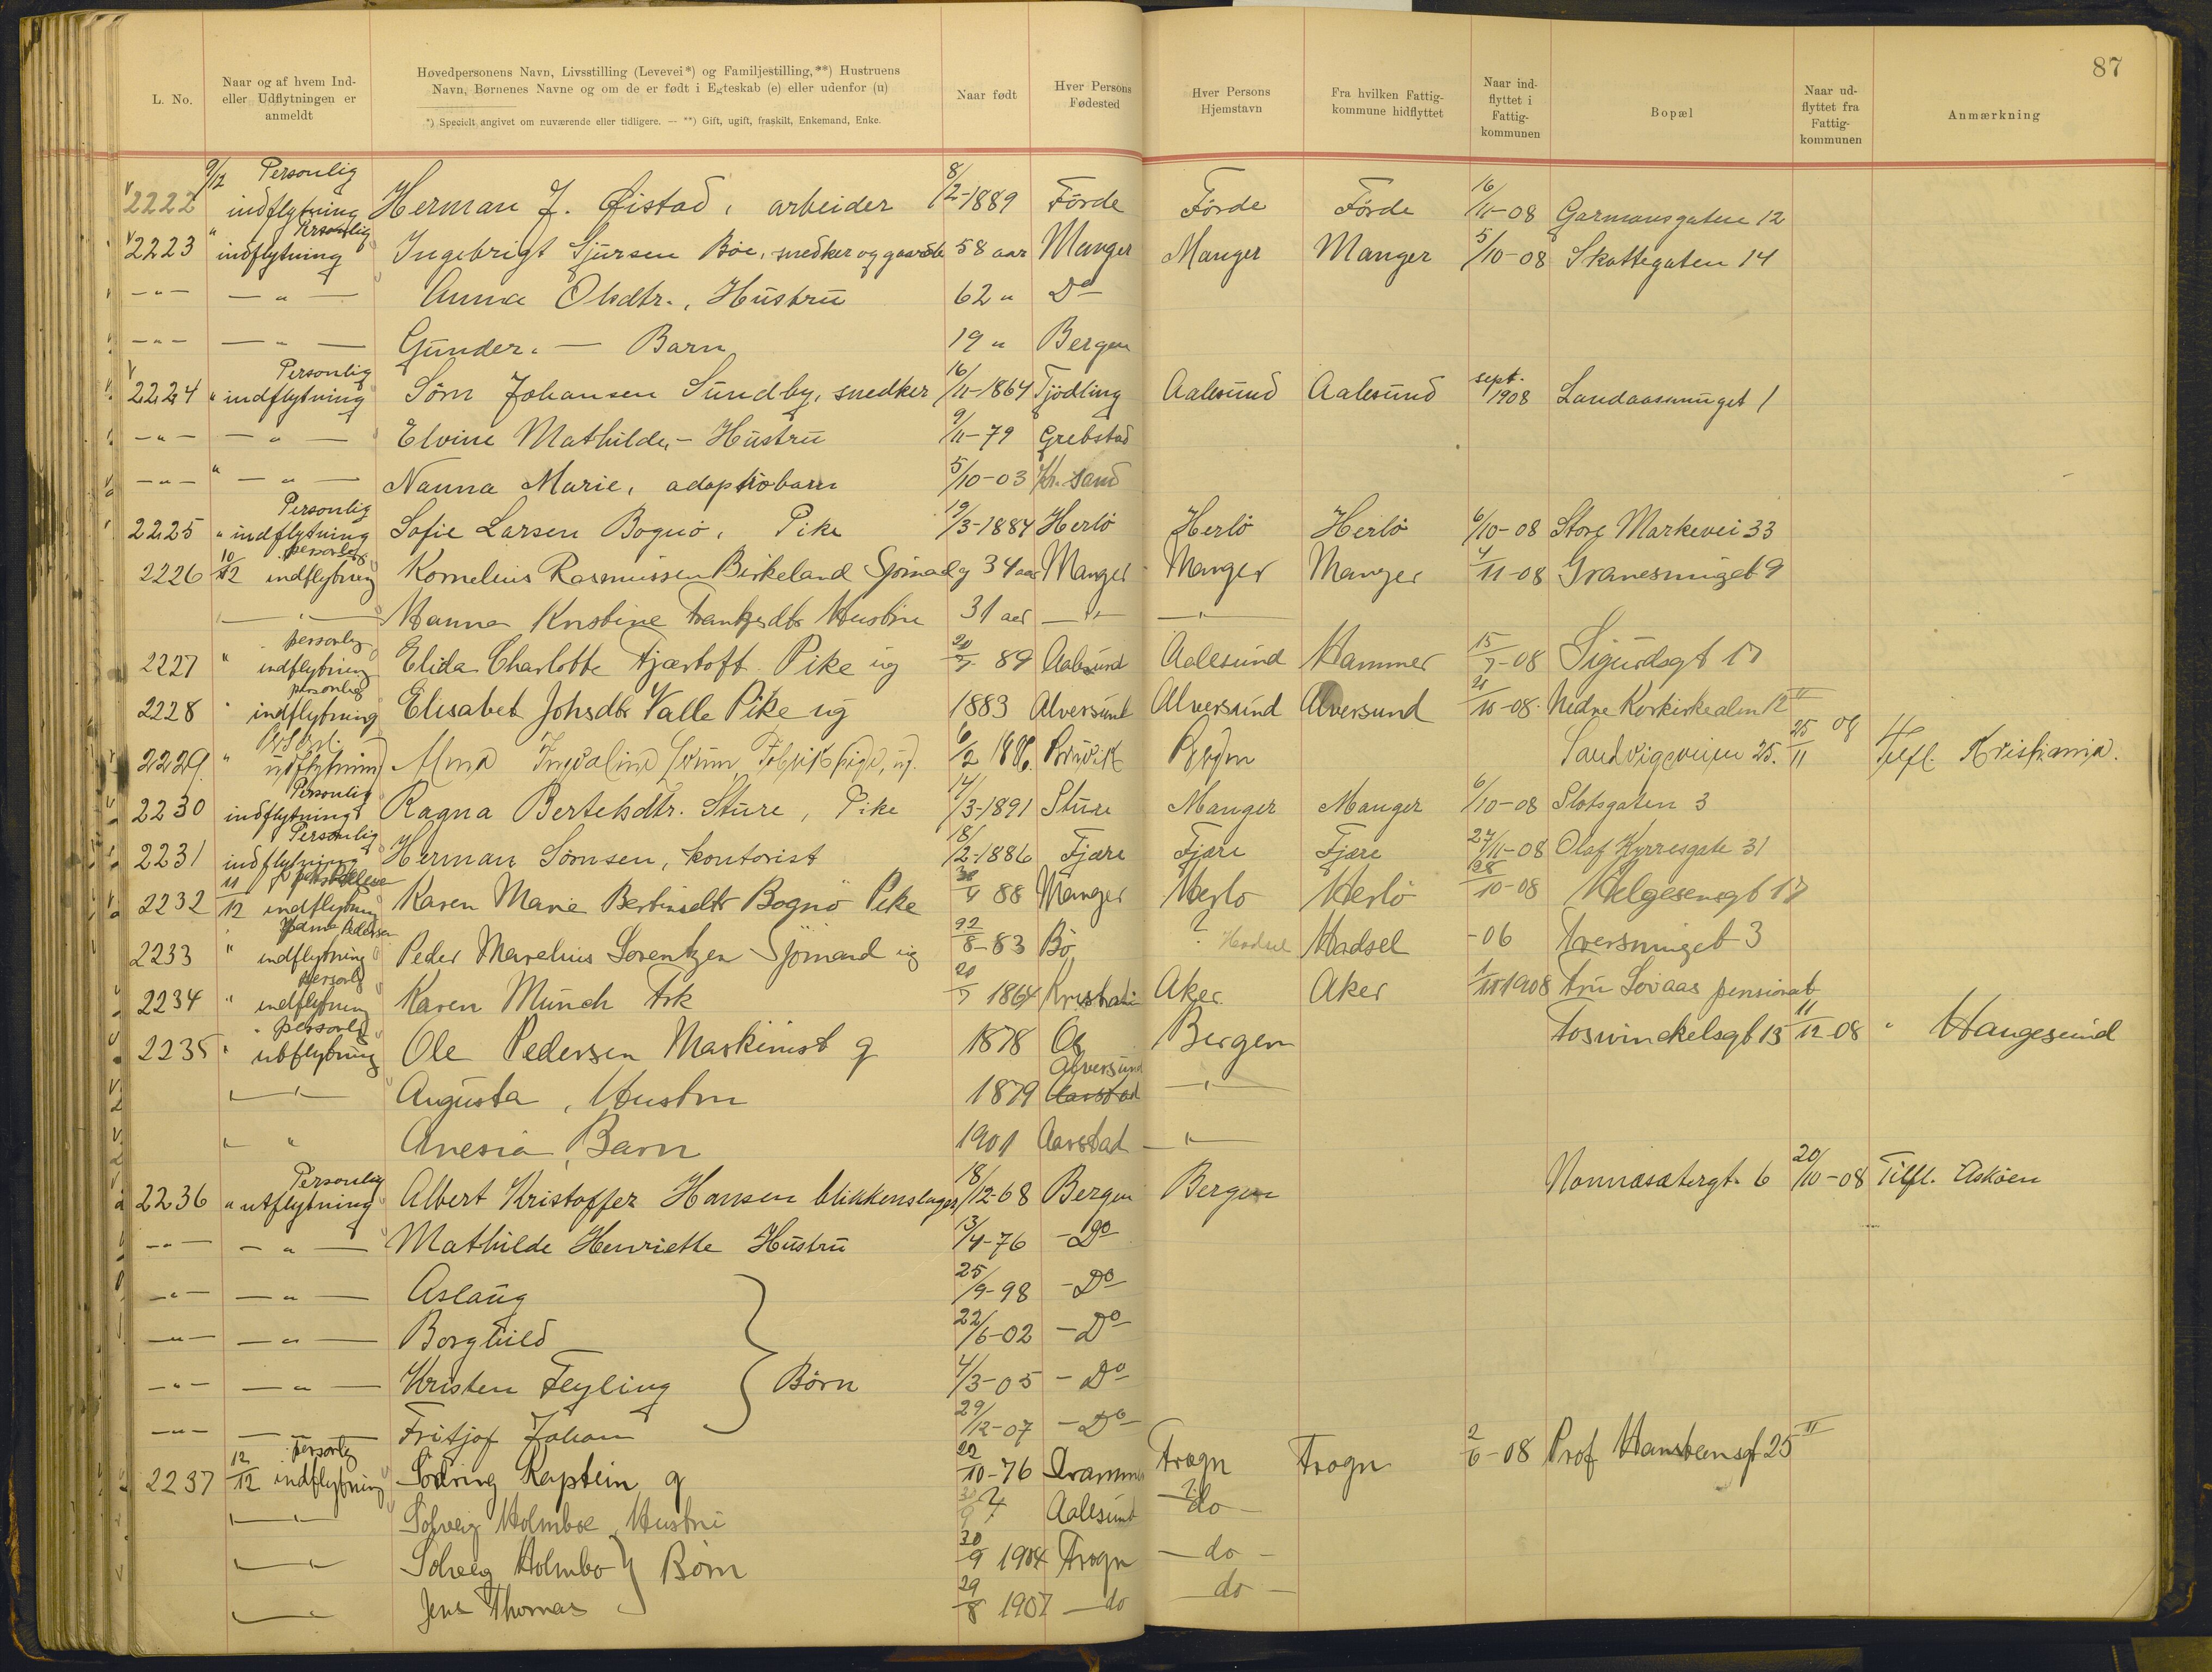 87
L. No.
Naar og af hvem Ind-
eller Udflytningen er
anmeldt
Høvedpersonens Navn, Livsstilling (Levevei*) og Familjestilling,**) Hustruens
Navn, Børnenes Navne og om de er født i Egteskab (e) eller udenfor (u)
*) Specielt angivet om nuværende eller tidligere. — **) Gift, ugift, fraskilt, Enkemand, Enke.
Naar født
Hver Persons
Fødested
Hver Persons
Hjemstavn
Fra hvilken Fattig-
kommune hidflyttet
Naar ind-
flyttet i
Fattig-
kommunen
Bopæl
Naar ud-
flyttet fra
Fattig-
kommunen
Anmærkning
2222 9/12 Personlig indflytning Herman J. Øistad, arbeider 8/12-1889 Förde Förde Förde 16/11-08 Garmansgaten 12
2223 " Personlig indflytning Ingebrigt Sjursen Böe, snedker og 58 aar Manger Manger Manger 5/10-08 Skottegaten 14
-"- -"- Anna Olsdtr., Hustru 62 " Do
-"- -"- Gunder. - Barn 19 " Bergen
2224 " Personlig indflytning Sörn Johansen Sundby, snedker 16/11-1864 Tjödling Aalesund Aalesund sept. 1908 Landaassmuget 1
-"- -"- Elvine Mathilde, - Hustru 9/11-79 Grebstad
-"- " -"- Nanna Marie, adoptivbarn 5/10-03 Kr. sand
2225 " Personlig indflytning Sofie Larsen Bognö, Pike 19/3-1884 Herlö Herlö Herlö 6/10-08 Store Markevei 33
2226 10/12 personlig indflytning Kornelius Rasmussen Birkeland Sjömand g 34 aar Manger Manger Manger 4/11-08 Granesmuget 9
-"- Hanna Kristine Hustru 31 aar -"- -"-
2227 " personlig indflytning Elida Charlotte Fjærtoft Pike ug 20/7 89 Aalesund Aalesund Hammer 15/7-08 Sigurdsgt 17
2228 " personlig indflytning Elisabet Johsdtr Valle Pike ug 1883 Alversund Alversund Alversund 21/10-08 Nedre Korskirkealm 12 II
2229 " udflytning Alma 6/2 1886 Bruvik Bergen Sandvigsveien 25. 25/11 08 Tilfl. Kristiania.
2230 Personlig indflytning Ragna Bertelsdtr. Sture, Pike 14/3-1891 Sture Manger Manger 6/10-08 Slotsgaten 3
2231 Personlig indflytning Herman Sörnsen, kontorist 18/12-1886 Fjære Fjære Fjære 27/11-08 Olaf Kyrresgate 31
2232 11/12 indflytning Karen Marie Bertinsdtr Bognö Pike 30/4 88 Manger Herlö Herlö 28/10-08 Helgesensgt 17
2233 " Pedersen indflytning Peder Marelius Lorentzen Sjömand ug 22/8-83 Bö ? Hadsel Hadsel -06 Tversmuget 3
2234 " personlig indflytning Karen Münch Frk 20/7 1864 Kristiania Aker Aker 1/11 1908 Fru Lovaas pensionat
2235 " personlig utflytning Ole Pedersen Maskinist g 1878 Os Bergen Foswinckelsgt 13 11/12-08 " Haugesund
-"- Augusta, Hustru 1879 Alversund Aarstad -"-
" " Anesia, Barn 1901 Aarstad -"-
2236 " Personlig utflytning Albert Kristoffer Hansen blikkenslager 18/12-68 Bergen Bergen Nonnesætergt. 6 20/10-08 Tilfl. Asköen
-"- -"- Mathilde Henriette Hustru 13/4-76 -Do-
-"- -"- Aslaug 25/9-98 -Do-
-"- -"- Borghild 22/6-02 -Do-
-"- -"- Kristen Feyling } Börn 4/3-05 -Do-
-"- -"- Fritjof Johan 29/12-07 -Do-
2237 12/12 personlig indflytning Södring Kaptein g 22/10-76 Drammen Frogn Frogn 2/6-08 Prof Hansteensgt 25 II
-"- Solveig Holmboe, Hustru 30/9 ? Aalesund -do-
-"- Solveig Holmbo } Börn 30/9 1904 Frogn -do-
-"- Jens Thomas 29/8 1907 -do -do-